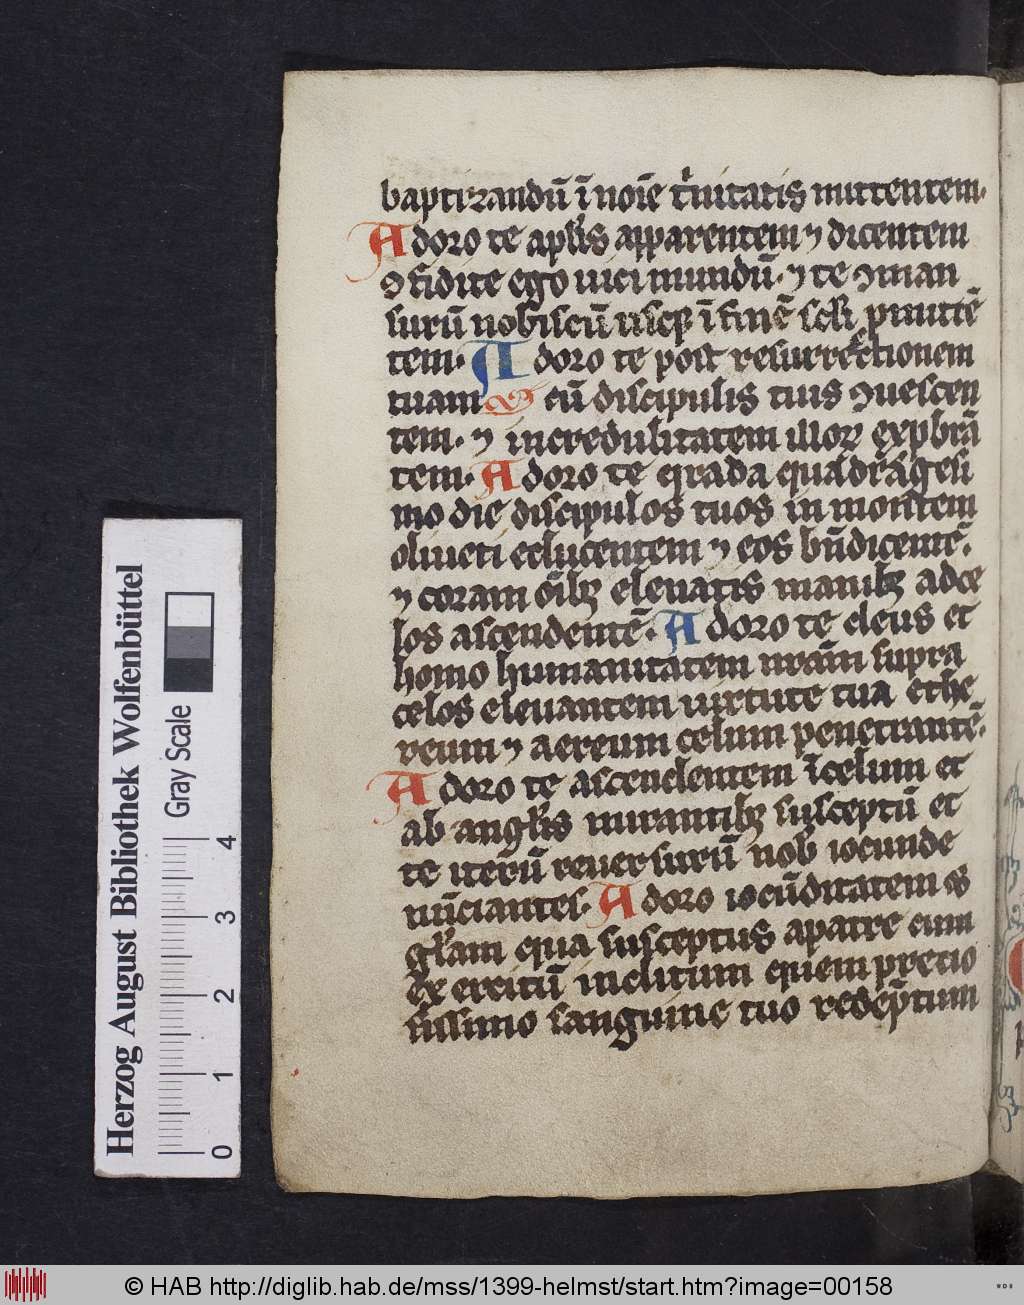 baptizandū ī noīe t'nitatis mittentem·
Adoro te apl'is apparentem ⁊ dicentem
ꝯfidite ego uici mundū· ⁊ te ꝯman
surū nobiscū usqꝫ ī finē scl'i ꝓmittē
tem· Adoro te post resurrectionem
tuam cū discipulis tuis ꝯuescen
tem· ⁊ incredulitatem illoꝝ exprobrā
tem· Adoro te qͥ quadragesi
mo die discipulos tuos in montem
oliueti educentem ⁊ eos bn̄dicentē·
⁊ coram oīb; eleuatis manib; ad ce
los ascendentē· Adoro te deus et
homo humanitatem nrām supra
celos eleuantem uirtute tua ethe
reum ⁊ aereum celum penetrantē·
Adoro te ascendentem ī celum et
ab angl'is mirantib; susceptū et
te iterū reuersurū nob' iocunde
nūciantes· Adoro iocūditatem
gl'am qua susceptus a patre cum
exercitū inclitum quem precio
sissimo sanguine tuo redēptum
Herzog August Bibliothek Wolfenbüttel
Gray Scale
0 1 2 3 4
© HAB http://diglib.hab.de/mss/1399-helmst/start.htm?image=00158